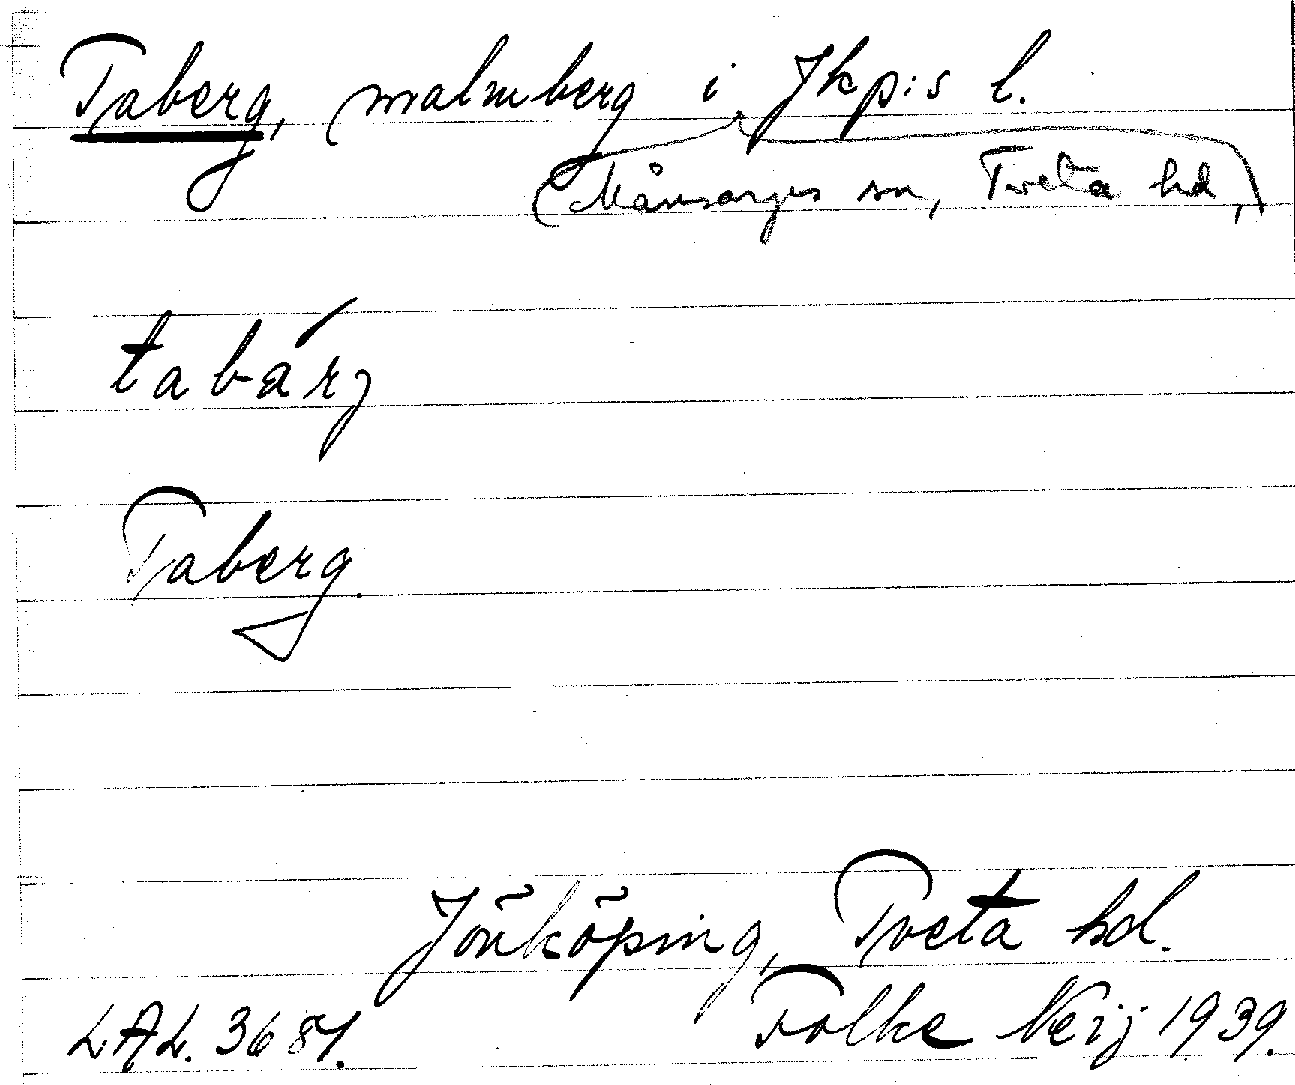 Taberg, malmberg i Jkp:s l.
(Månsarps sn, Tveta hd,)
tabárj
Taberg.
Jönköping, Tveta hd.
LAL. 3681. Folke Neij 1939.